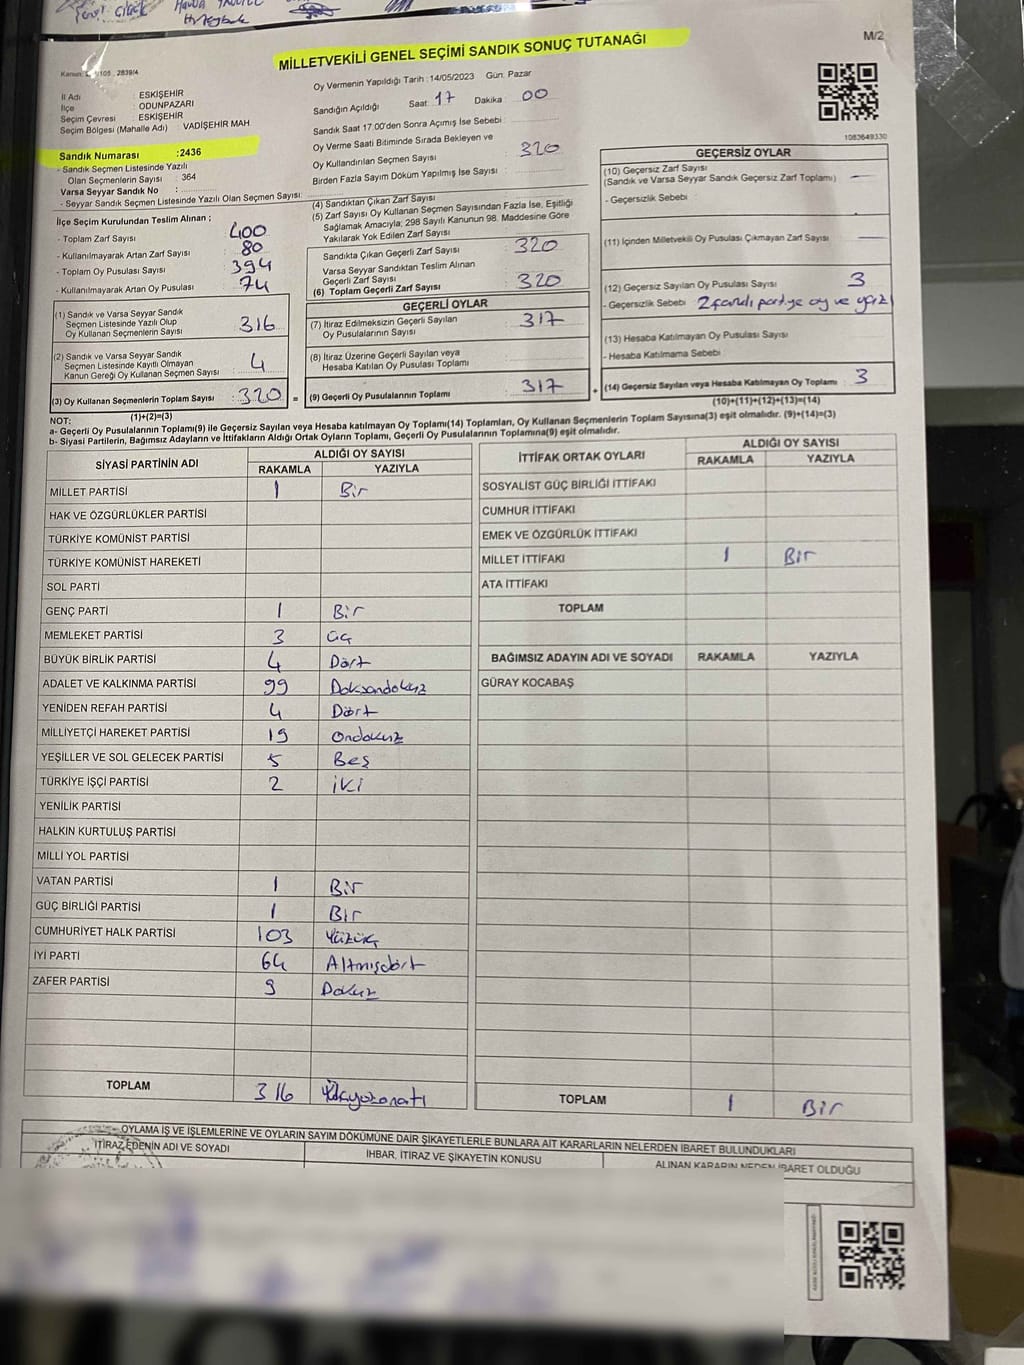 MİLLETVEKİLİ GENEL SEÇİMİ SANDIK SONUÇ TUTANAĞI
M/2
2839/4
İl Adı : ESKİŞEHİR
İlçe : ODUNPAZARI
Seçim Çevresi : ESKİŞEHİR
Seçim Bölgesi (Mahalle Adı) : VADİŞEHİR MAH
Sandık Numarası :2436
- Sandık Seçmen Listesinde Yazılı
Olan Seçmenlerin Sayısı : 364
Varsa Seyyar Sandık No :
- Seyyar Sandık Seçmen Listesinde Yazılı Olan Seçmen Sayısı:
Oy Vermenin Yapıldığı Tarih :14/05/2023 Gün: Pazar
Sandığın Açıldığı Saat: 17 Dakika : 00
Sandık Saat 17:00'den Sonra Açımış İse Sebebi :
Oy Verme Saati Bitiminde Sırada Bekleyen ve
Oy Kullandırılan Seçmen Sayısı : 320
Birden Fazla Sayım Döküm Yapılmış İse Sayısı :
İlçe Seçim Kurulundan Teslim Alınan ;
- Toplam Zarf Sayısı : 400
- Kullanılmayarak Artan Zarf Sayısı : 80
- Toplam Oy Pusulası Sayısı : 394
- Kullanılmayarak Artan Oy Pusulası : 74
(1) Sandık ve Varsa Seyyar Sandık
Seçmen Listesinde Yazılı Olup
Oy Kullanan Seçmenlerin Sayısı : 316
(2) Sandık ve Varsa Seyyar Sandık
Seçmen Listesinde Kayıtlı Olmayan
Kanun Gereği Oy Kullanan Seçmen Sayısı : 4
(3) Oy Kullanan Seçmenlerin Toplam Sayısı : 320
(1)+(2)=(3)
(4) Sandıktan Çıkan Zarf Sayısı
(5) Zarf Sayısı Oy Kullanan Seçmen Sayısından Fazla İse, Eşitliği
Sağlamak Amacıyla; 298 Sayılı Kanunun 98. Maddesine Göre
Yakılarak Yok Edilen Zarf Sayısı
Sandıkta Çıkan Geçerli Zarf Sayısı : 320
Varsa Seyyar Sandıktan Teslim Alınan
Geçerli Zarf Sayısı
(6) Toplam Geçerli Zarf Sayısı : 320
GEÇERLİ OYLAR
(7) İtiraz Edilmeksizin Geçerli Sayılan
Oy Pusulalarının Sayısı : 317
(8) İtiraz Üzerine Geçerli Sayılan veya
Hesaba Katılan Oy Pusulası Toplamı :
= (9) Geçerli Oy Pusulalarının Toplamı : 317
1083649330
GEÇERSİZ OYLAR
(10) Geçersiz Zarf Sayısı
(Sandık ve Varsa Seyyar Sandık Geçersiz Zarf Toplamı)
- Geçersizlik Sebebi :
(11) İçinden Milletvekili Oy Pusulası Çıkmayan Zarf Sayısı
(12) Geçersiz Sayılan Oy Pusulası Sayısı : 3
- Geçersizlik Sebebi : 2 farklı partiye oy ve
(13) Hesaba Katılmayan Oy Pusulası Sayısı :
- Hesaba Katılmama Sebebi :
+ (14) Geçersiz Sayılan veya Hesaba Katılmayan Oy Toplamı : 3
(10)+(11)+(12)+(13)=(14)
NOT:
a- Geçerli Oy Pusulalarının Toplamı(9) ile Geçersiz Sayılan veya Hesaba katılmayan Oy Toplamı(14) Toplamları, Oy Kullanan Seçmenlerin Toplam Sayısına(3) eşit olmalıdır. (9)+(14)=(3)
b- Siyasi Partilerin, Bağımsız Adayların ve İttifakların Aldığı Ortak Oyların Toplamı, Geçerli Oy Pusulalarının Toplamına(9) eşit olmalıdır.
SİYASİ PARTİNİN ADI ALDIĞI OY SAYISI
RAKAMLA YAZIYLA
MİLLET PARTİSİ 1 Bir
HAK VE ÖZGÜRLÜKLER PARTİSİ
TÜRKİYE KOMÜNİST PARTİSİ
TÜRKİYE KOMÜNİST HAREKETİ
SOL PARTİ
GENÇ PARTİ 1 Bir
MEMLEKET PARTİSİ 3 Üç
BÜYÜK BİRLİK PARTİSİ 4 Dört
ADALET VE KALKINMA PARTİSİ 99 Doksandokuz
YENİDEN REFAH PARTİSİ 4 Dört
MİLLİYETÇİ HAREKET PARTİSİ 19 Ondokuz
YEŞİLLER VE SOL GELECEK PARTİSİ 5 Beş
TÜRKİYE İŞÇİ PARTİSİ 2 İki
YENİLİK PARTİSİ
HALKIN KURTULUŞ PARTİSİ
MİLLİ YOL PARTİSİ
VATAN PARTİSİ 1 Bir
GÜÇ BİRLİĞİ PARTİSİ 1 Bir
CUMHURİYET HALK PARTİSİ 103 Yüzüç
İYİ PARTİ 64 Altmışdört
ZAFER PARTİSİ 9 Dokuz
TOPLAM 316
İTTİFAK ORTAK OYLARI ALDIĞI OY SAYISI
RAKAMLA YAZIYLA
SOSYALİST GÜÇ BİRLİĞİ İTTİFAKI
CUMHUR İTTİFAKI
EMEK VE ÖZGÜRLÜK İTTİFAKI
MİLLET İTTİFAKI 1 Bir
ATA İTTİFAKI
TOPLAM
BAĞIMSIZ ADAYIN ADI VE SOYADI RAKAMLA YAZIYLA
GÜRAY KOCABAŞ
TOPLAM 1 Bir
OYLAMA İŞ VE İŞLEMLERİNE VE OYLARIN SAYIM DÖKÜMÜNE DAİR ŞİKAYETLERLE BUNLARA AİT KARARLARIN NELERDEN İBARET BULUNDUKLARI
İTİRAZ EDENİN ADI VE SOYADI İHBAR, İTİRAZ VE ŞİKAYETİN KONUSU ALINAN KARARIN NEDEN İBARET OLDUĞU